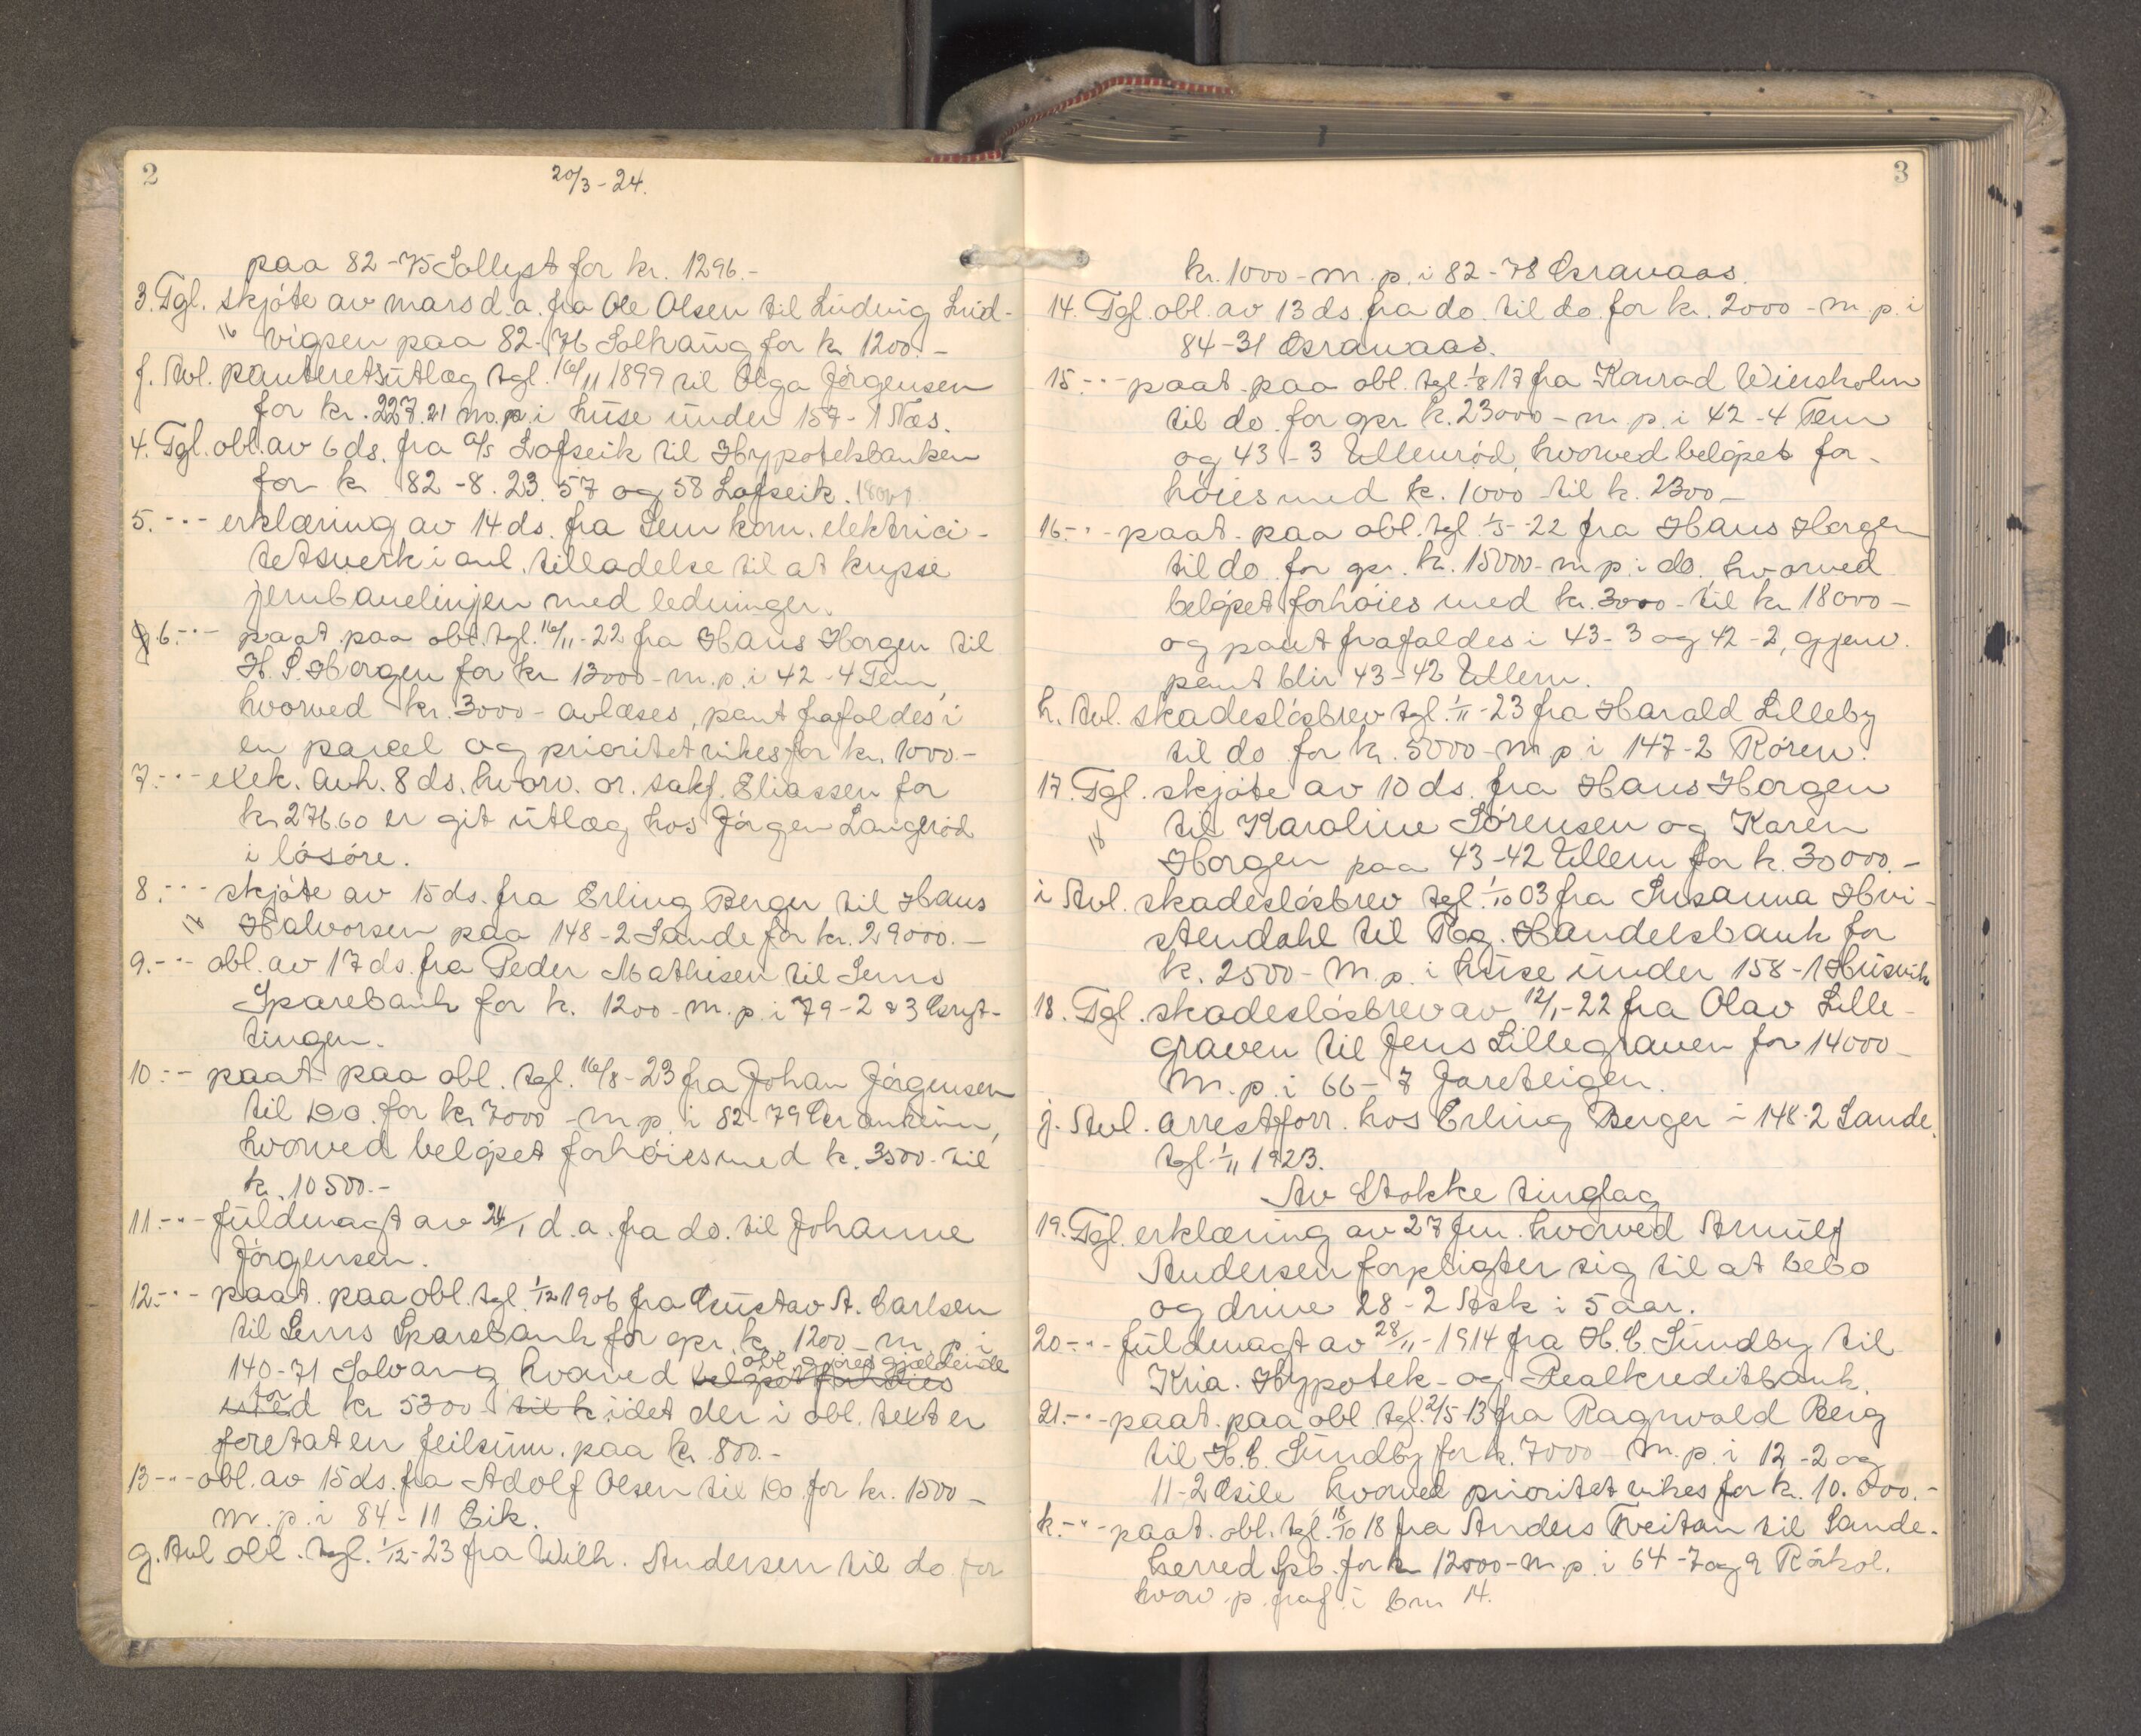 2
20/3-24.
paa 82-75 Sollyst for kr. 1296.-
3. Tgl. skjöte av mars d.a. fra Ole Olsen til Ludvig Lud-
vigsen paa 82-76 Solhaug for k 1200.-
f. Avl. panteretsutlæg tgl. 16/11 1899 til Olga Jörgensen
for kr. 227.21 m.p. i huse under 157-1 Næs.
4. Tgl. obl. av 6 ds. fra A/S Lofseik til Hypotekbanken
for k 82-8. 23. 57 og 58 Lofseik.
5. -"- erklæring av 14 ds. fra Sem kom. elektrici-
tetsverk i anl. tilladelse til at krysse
jernbanelinjen med ledninger.
6. -"- paat. paa obl. tgl. 16/11-22 fra Hans Horgen til
H. S. Horgen for kr 13000- m.p. i 42-4 Tem,
hvorved kr. 3000- avlæses, pant frafaldes i
en parcel og prioritet vikes for kr. 1000.-
7. -"- exek. avh. 8 ds. hvorv. or. sakf. Eliassen for
kr 276.60 er git utlæg hos Jörgen Langeröd
i lösöre.
8. -"- skjöte av 15 ds. fra Erling Berger til Hans
Halvorsen paa 148-2 Sande for kr. 29000.-
9. -"- obl. av 17 ds. fra Peder Mathisen til Sems
Sparebank for k. 1200- m.p. i 79-2 & 3 Gryt-
tingen.
10. -"- paat. paa obl. tgl. 16/8-23 fra Johan Jörgensen
til Do. for kr 7000- m.p. i 82-79 Granheim,
hvorved belöpet forhöies med k. 3500- til
k. 10500.-
11. -"- fuldmagt av 24/1 d.a. fra do. til Johanne
Jörgensen.
12. -"- paat. paa obl. tgl. 1/12 1906 fra Gustav A. Carlsen
til Sems Sparebank for opr. k. 1200- m.p. i
obl. gjöres gjældende
140-71 Solvang hvorved belöpet forhöies
for
med kr 5300- til k idet der i obl. text er
foretat en feilsum. paa kr. 800.-
13 -"- obl. av 15 ds. fra Adolf Olsen til Do. for kr. 1500-
m.p. i 84-11 Eik.
g. Avl obl. tgl. 1/12-23 fra Wilh. Andersen til do for
3
kr. 1000- m.p. i 82-78 Granaas.
14. Tgl. obl. av 13 ds. fra do. til do. for kr. 2000- m.p. i
84-31 Granaas.
15 -"- paat. paa obl. tgl. 1/8 17 fra Konrad Wiersholm
til do. for opr k. 23000- m.p. i 42-4 Tem
og 43-3 Ullenröd, hvorved belöpet for-
höies med k. 1000- til k. 2300-
16. -"- paat. paa obl. tgl. 1/5-22 fra Hans Horgen
til do. for opr. k. 15000- m.p. i do. hvorved
belöpet forhöies med kr. 3000- til kr 18000-
og pant frafaldes i 43-3 og 42-2, gjenv.
pant blir 43-42 Ullern.
h. Avl. skadeslösbrev tgl. 1/11-23 fra Harald Lilleby
til do for k. 5000- m.p. i 147-2 Rören.
17. Tgl. skjöte av 10 ds. fra Hans Horgen
til Karoline Sörensen og Karen
18
Horgen paa 43-42 Ullern for k. 30000.-
i Avl. skadeslösbrev tgl. 1/10 03 fra Susanna Hvi-
stendahl til Tbg. Handelsbank for
k. 2500- m.p. i huse under 158-1 Husvik
18. Tgl. skadeslösbrev av 12/1-22 fra Olav Lille-
graven til Jens Lillegraven for 14000-
m.p. i 66-7 Jareteigen.
j. Avl. arrestforr. hos Erling Berger i 148-2 Sande.
tgl. 1/11 1923.
Av Stokke tinglag
19. Tgl. erklæring av 27 fm. hvorved Arnulf
Andersen forpligter sig til at bebo
og drive 28-2 Ask i 5 aar.
20 -"- fuldmagt av 28/11-1914 fra H. C. Sundby til
Kria. Hypotek- og Realkreditbank.
21. -"- paat. paa obl tgl. 2/5-13 fra Ragnvald Berg
til H. C. Sundby for k. 7000- m.p. i 12-2 og
11-2 Gsile hvorved prioritet vikes for k. 10.000.-
k. -"- paat. obl. tgl. 18/10 18 fra Anders Tveitan til Sande-
herred Spb. for k 12000- m.p. i 64-7 og 9 Rörkol.
hvorv. p. fraf. i brn 14.